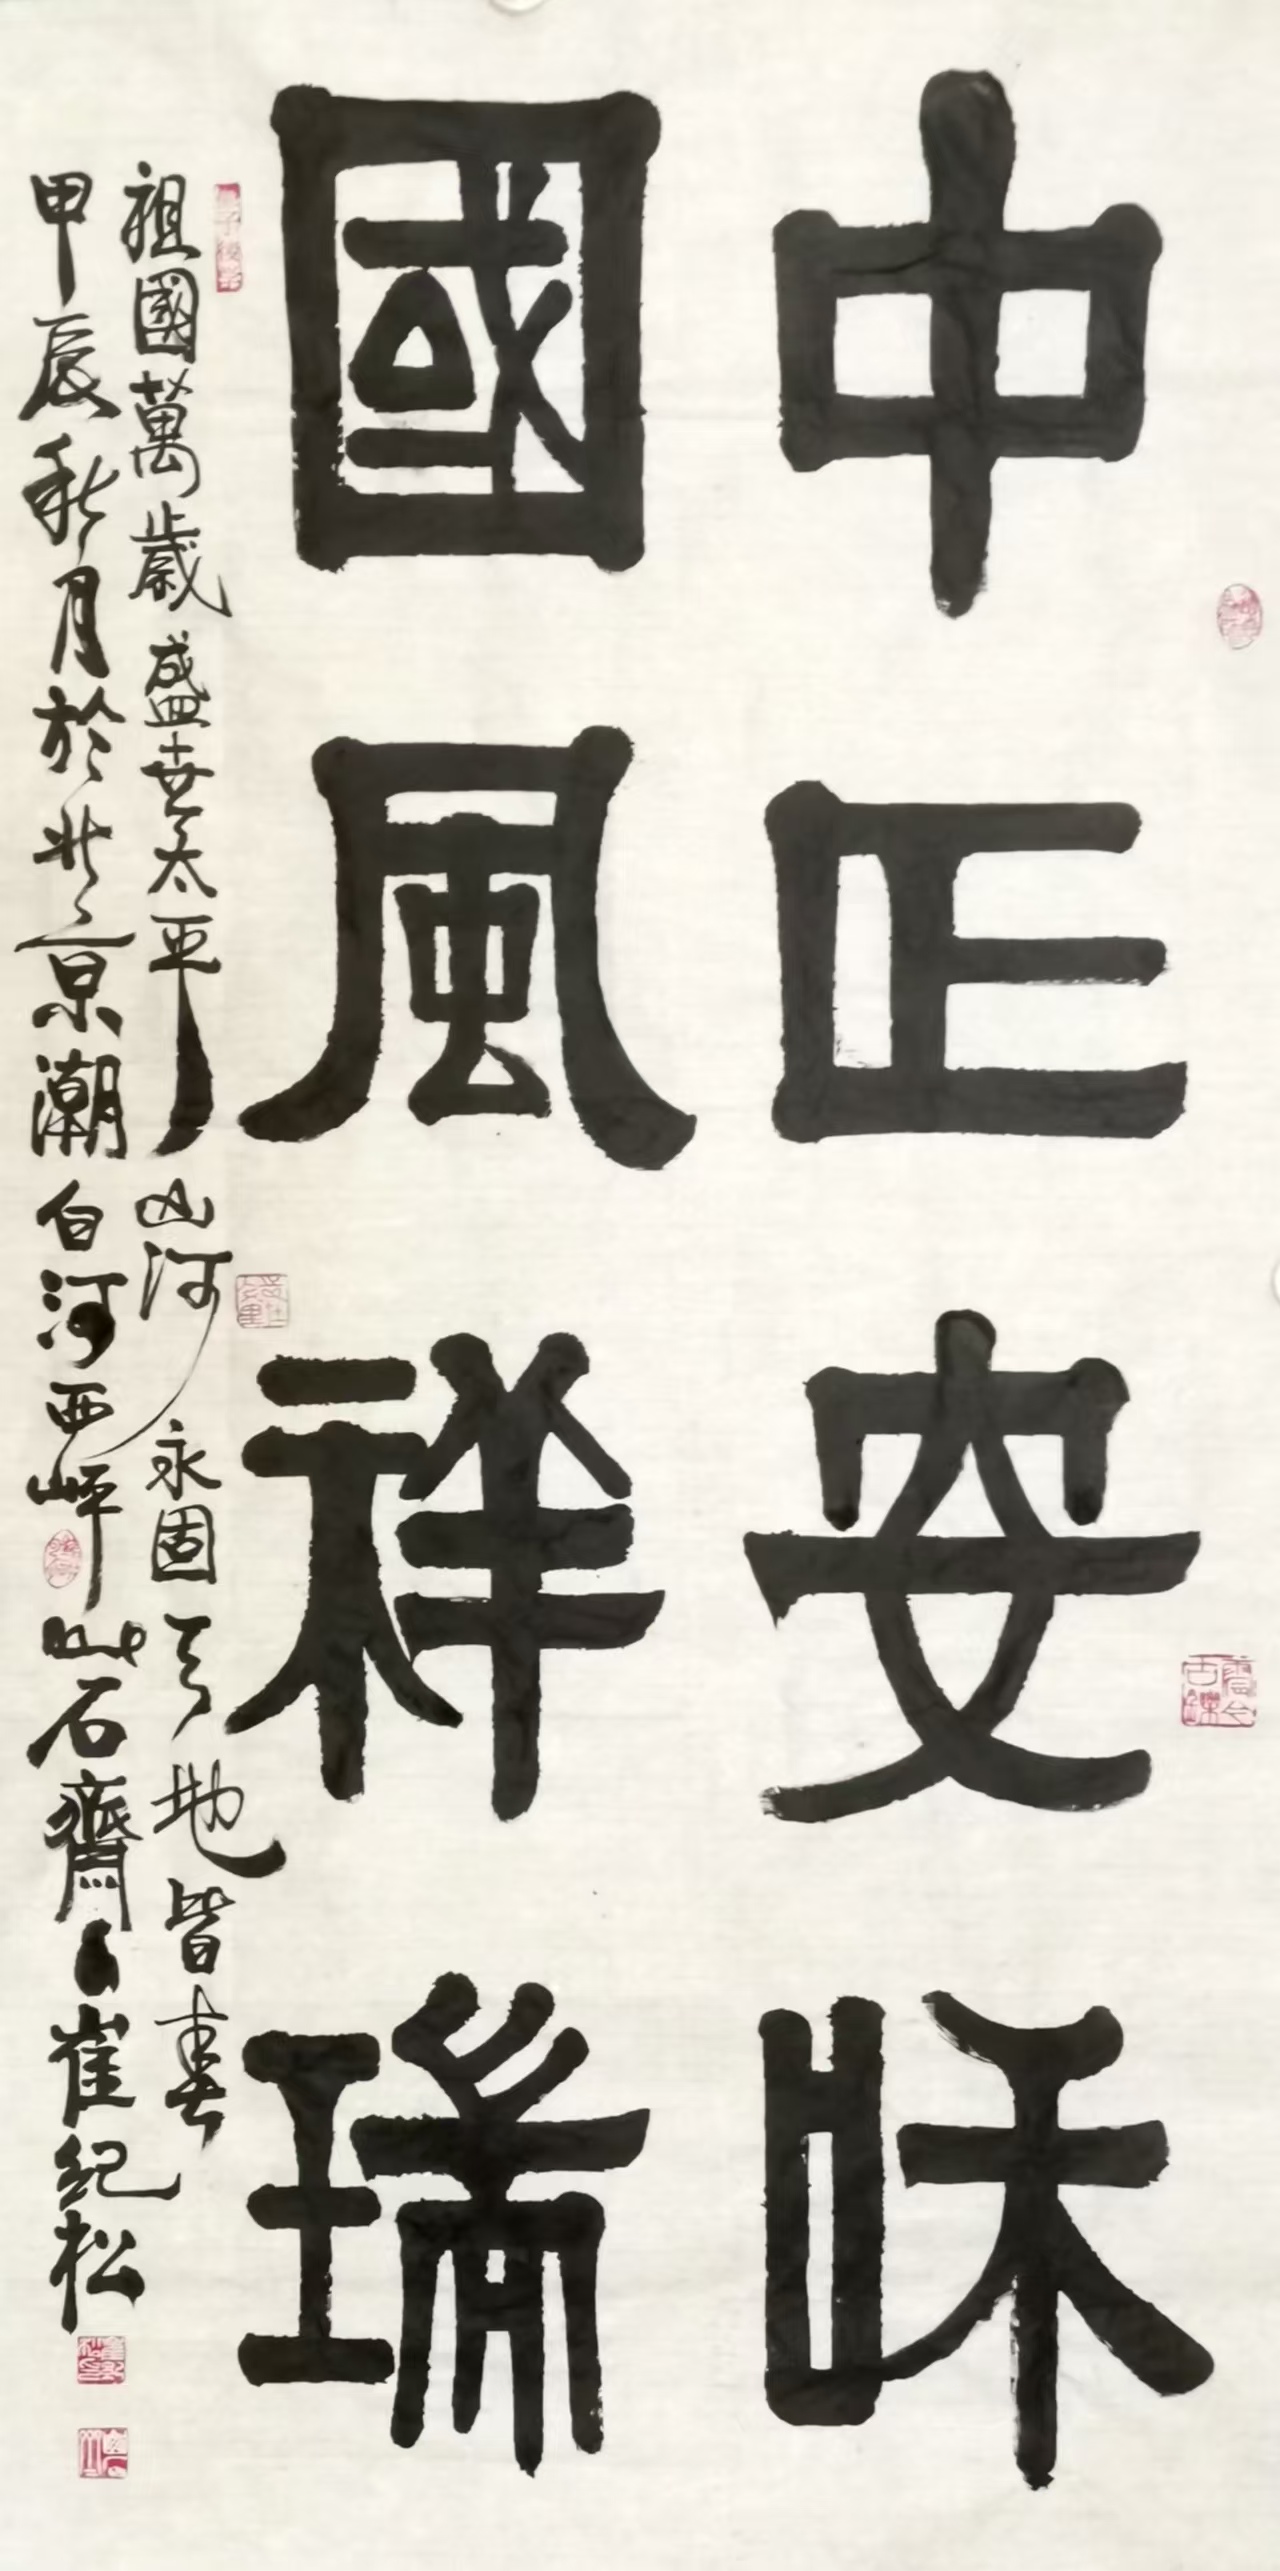 中正安和
國風祥瑞
祖國萬歲盛世太平山河永固天地皆春
甲辰秋月於北京潮白河西岸山石齋崔紀松